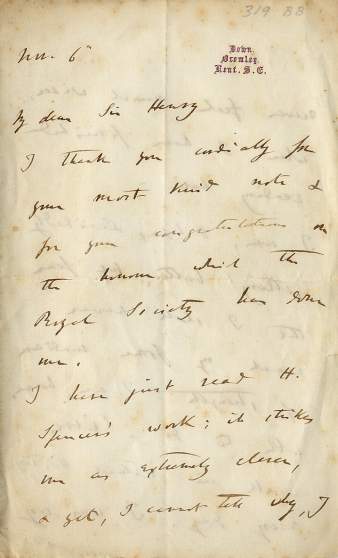 319 BB
Down,
Bromley,
Kent. S. E.
Nov. 6th
My dear Sir Henry
I thank you cordially for
your most kind note &
for your congratulations on
the honour which the
Royal Society has done
me.
I have just read H.
Spencer's work; it strikes
me as extremely clever,
& yet, I cannot tell why, I